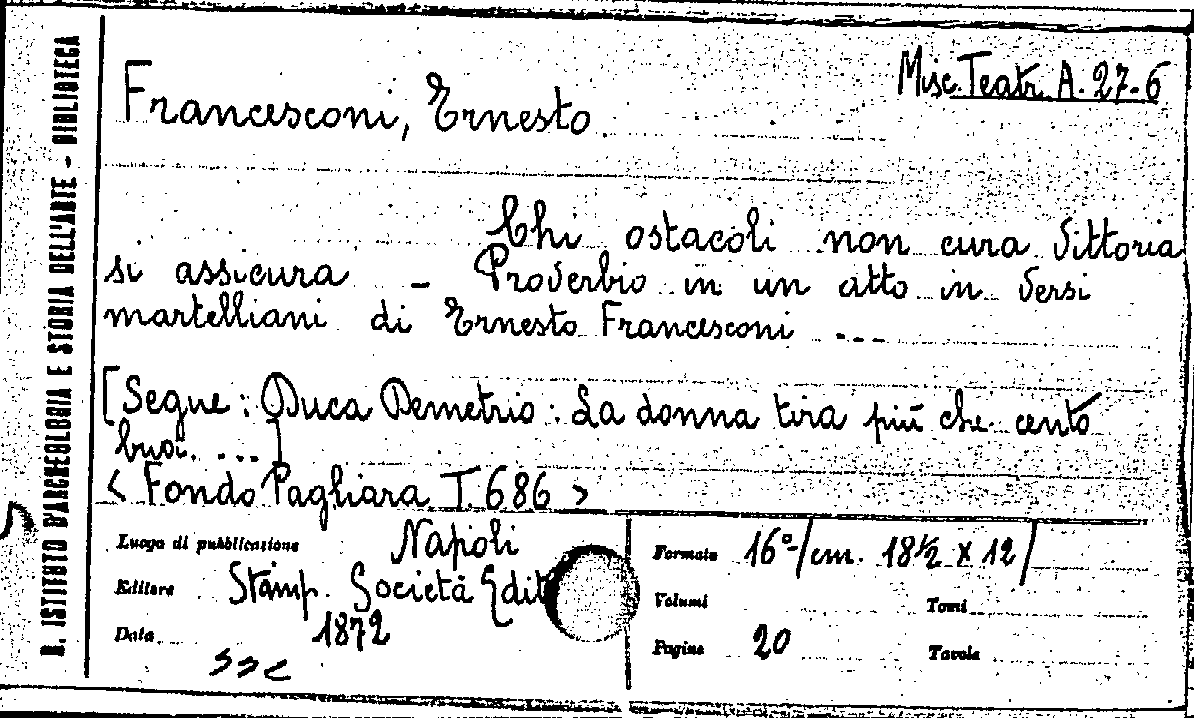 R. ISTITUTO D'ARCHEOLOGIA E STORIA DELL'ARTE - BIBLIOTECA
Misc. Teatr. A. 27-6
Francesconi, Ernesto
Chi ostacoli non cura Vittoria
si assicura – Proverbio in un atto in versi
martelliani di Ernesto Francesconi ...
[Segue: Duca Demetrio: La donna tira più che cento
buoi. ...]
< Fondo Pagliara T. 686 >
Luogo di pubblicazione Napoli
Editore Stamp. Società Edit
Data 1872
Formato 16°-/cm. 18½ x 12/
Volumi Tomi
Pagine 20 Tavole